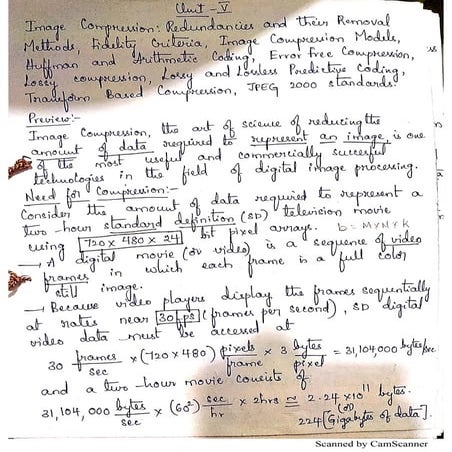 Unit - V
Image Compression: Redundancies and their Removal
Methods, Fidelity Criteria, Image Compression Models,
Huffman and Arithmetic Coding, Error Free Compression,
Lossy compression, Lossy and Lossless Predictive Coding,
Transform Based Compression, JPEG 2000 standards.
Preview:-
Image Compression, the art of science of reducing the
amount of data required to represent an image, is one
of the most useful and commercially successful
technologies in the field of digital image processing.
Need for Compression:-
Consider the amount of data required to represent a
two-hour standard definition (SD) television movie
using 720 x 480 x 24 bit pixel arrays. b = M x N x k
→ A digital movie (or video) is a sequence of video
frames in which each frame is a full color
still image.
→ Because video players display the frames sequentially
at rates near 30 fps (frames per second), SD digital
video data must be accessed at
30 frames/sec x (720 x 480) pixels/frame x 3 bytes/pixel = 31,104,000 bytes/sec
and a two-hour movie consists of
31,104,000 bytes/sec x (60²) sec/hr x 2hrs ≃ 2.24 x 10¹¹ bytes.
(or)
224 [Gigabytes of data].
Scanned by CamScanner